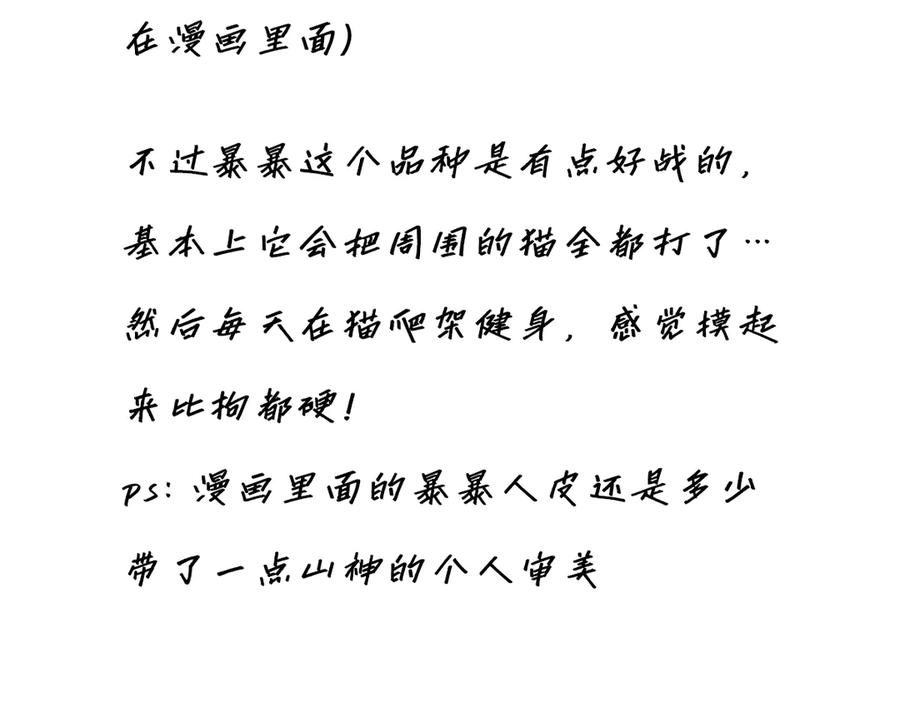 在漫画里面)
不过暴暴这个品种是有点好战的,
基本上它会把周围的猫全都打了…
然后每天在猫爬架健身, 感觉摸起
来比拘都硬!
ps: 漫画里面的暴暴人皮还是多少
带了一点山神的个人审美